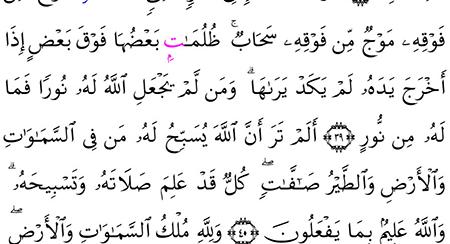 فَوْقِهِۦ مَوْجٌ مِّن فَوْقِهِۦ سَحَابٌ ۚ ظُلُمَـٰتٌۢ بَعْضُهَا فَوْقَ بَعْضٍ إِذَآ
أَخْرَجَ يَدَهُۥ لَمْ يَكَدْ يَرَىٰهَا ۗ وَمَن لَّمْ يَجْعَلِ ٱللَّهُ لَهُۥ نُورًا فَمَا
لَهُۥ مِن نُّورٍ ﴿٣٩﴾ أَلَمْ تَرَ أَنَّ ٱللَّهَ يُسَبِّحُ لَهُۥ مَن فِى ٱلسَّمَـٰوَٰتِ
وَٱلْأَرْضِ وَٱلطَّيْرُ صَـٰٓفَّـٰتٍ ۖ كُلٌّ قَدْ عَلِمَ صَلَاتَهُۥ وَتَسْبِيحَهُۥ ۗ
وَٱللَّهُ عَلِيمٌۢ بِمَا يَفْعَلُونَ ﴿٤٠﴾ وَلِلَّهِ مُلْكُ ٱلسَّمَـٰوَٰتِ وَٱلْأَرْضِ ۖ